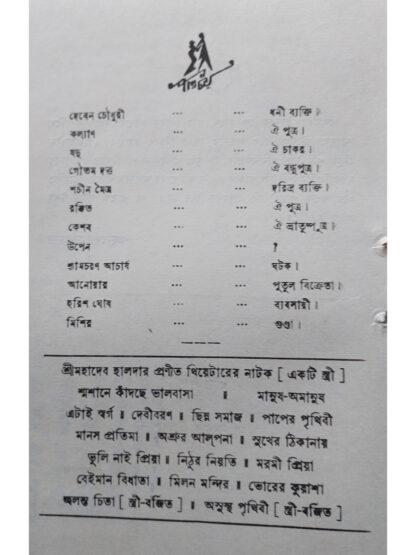 পরিচয়
হেরেন চৌধুরী ... ... ধনী ব্যক্তি।
কল্যাণ ... ... ঐ পুত্র।
যদু ... ... ঐ চাকর।
গৌতম দত্ত ... ... ঐ বন্ধুপুত্র।
শচীন মৈত্র ... ... দরিদ্র ব্যক্তি।
রঞ্জিত ... ... ঐ পুত্র।
কেশব ... ... ঐ ভ্রাতুষ্পুত্র।
উপেন ... ... ?
শ্যামচরণ আচার্য ... ... ঘটক।
আনোয়ার ... ... পুতুল বিক্রেতা।
হরিশ ঘোষ ... ... ব্যবসায়ী।
মিশির ... ... গুণ্ডা।
শ্রীমহাদেব হালদার প্রণীত থিয়েটারের নাটক [ একটি স্ত্রী ]
শ্মশানে কাঁদছে ভালবাসা ॥ মানুষ-অমানুষ
এটাই স্বর্গ ॥ দেবীবরণ ॥ ছিন্ন সমাজ ॥ পাপের পৃথিবী
মানস প্রতিমা ॥ অশ্রুর আল্পনা ॥ সুখের ঠিকানায়
ভুলি নাই প্রিয়া ॥ নিঠুর নিয়তি ॥ মরমী প্রিয়া
বেইমান বিধাতা ॥ মিলন মন্দির ॥ ভোরের কুয়াশা
জ্বলন্ত চিতা [ স্ত্রী-বর্জিত ] ॥ অসুস্থ পৃথিবী [ স্ত্রী-বর্জিত ]